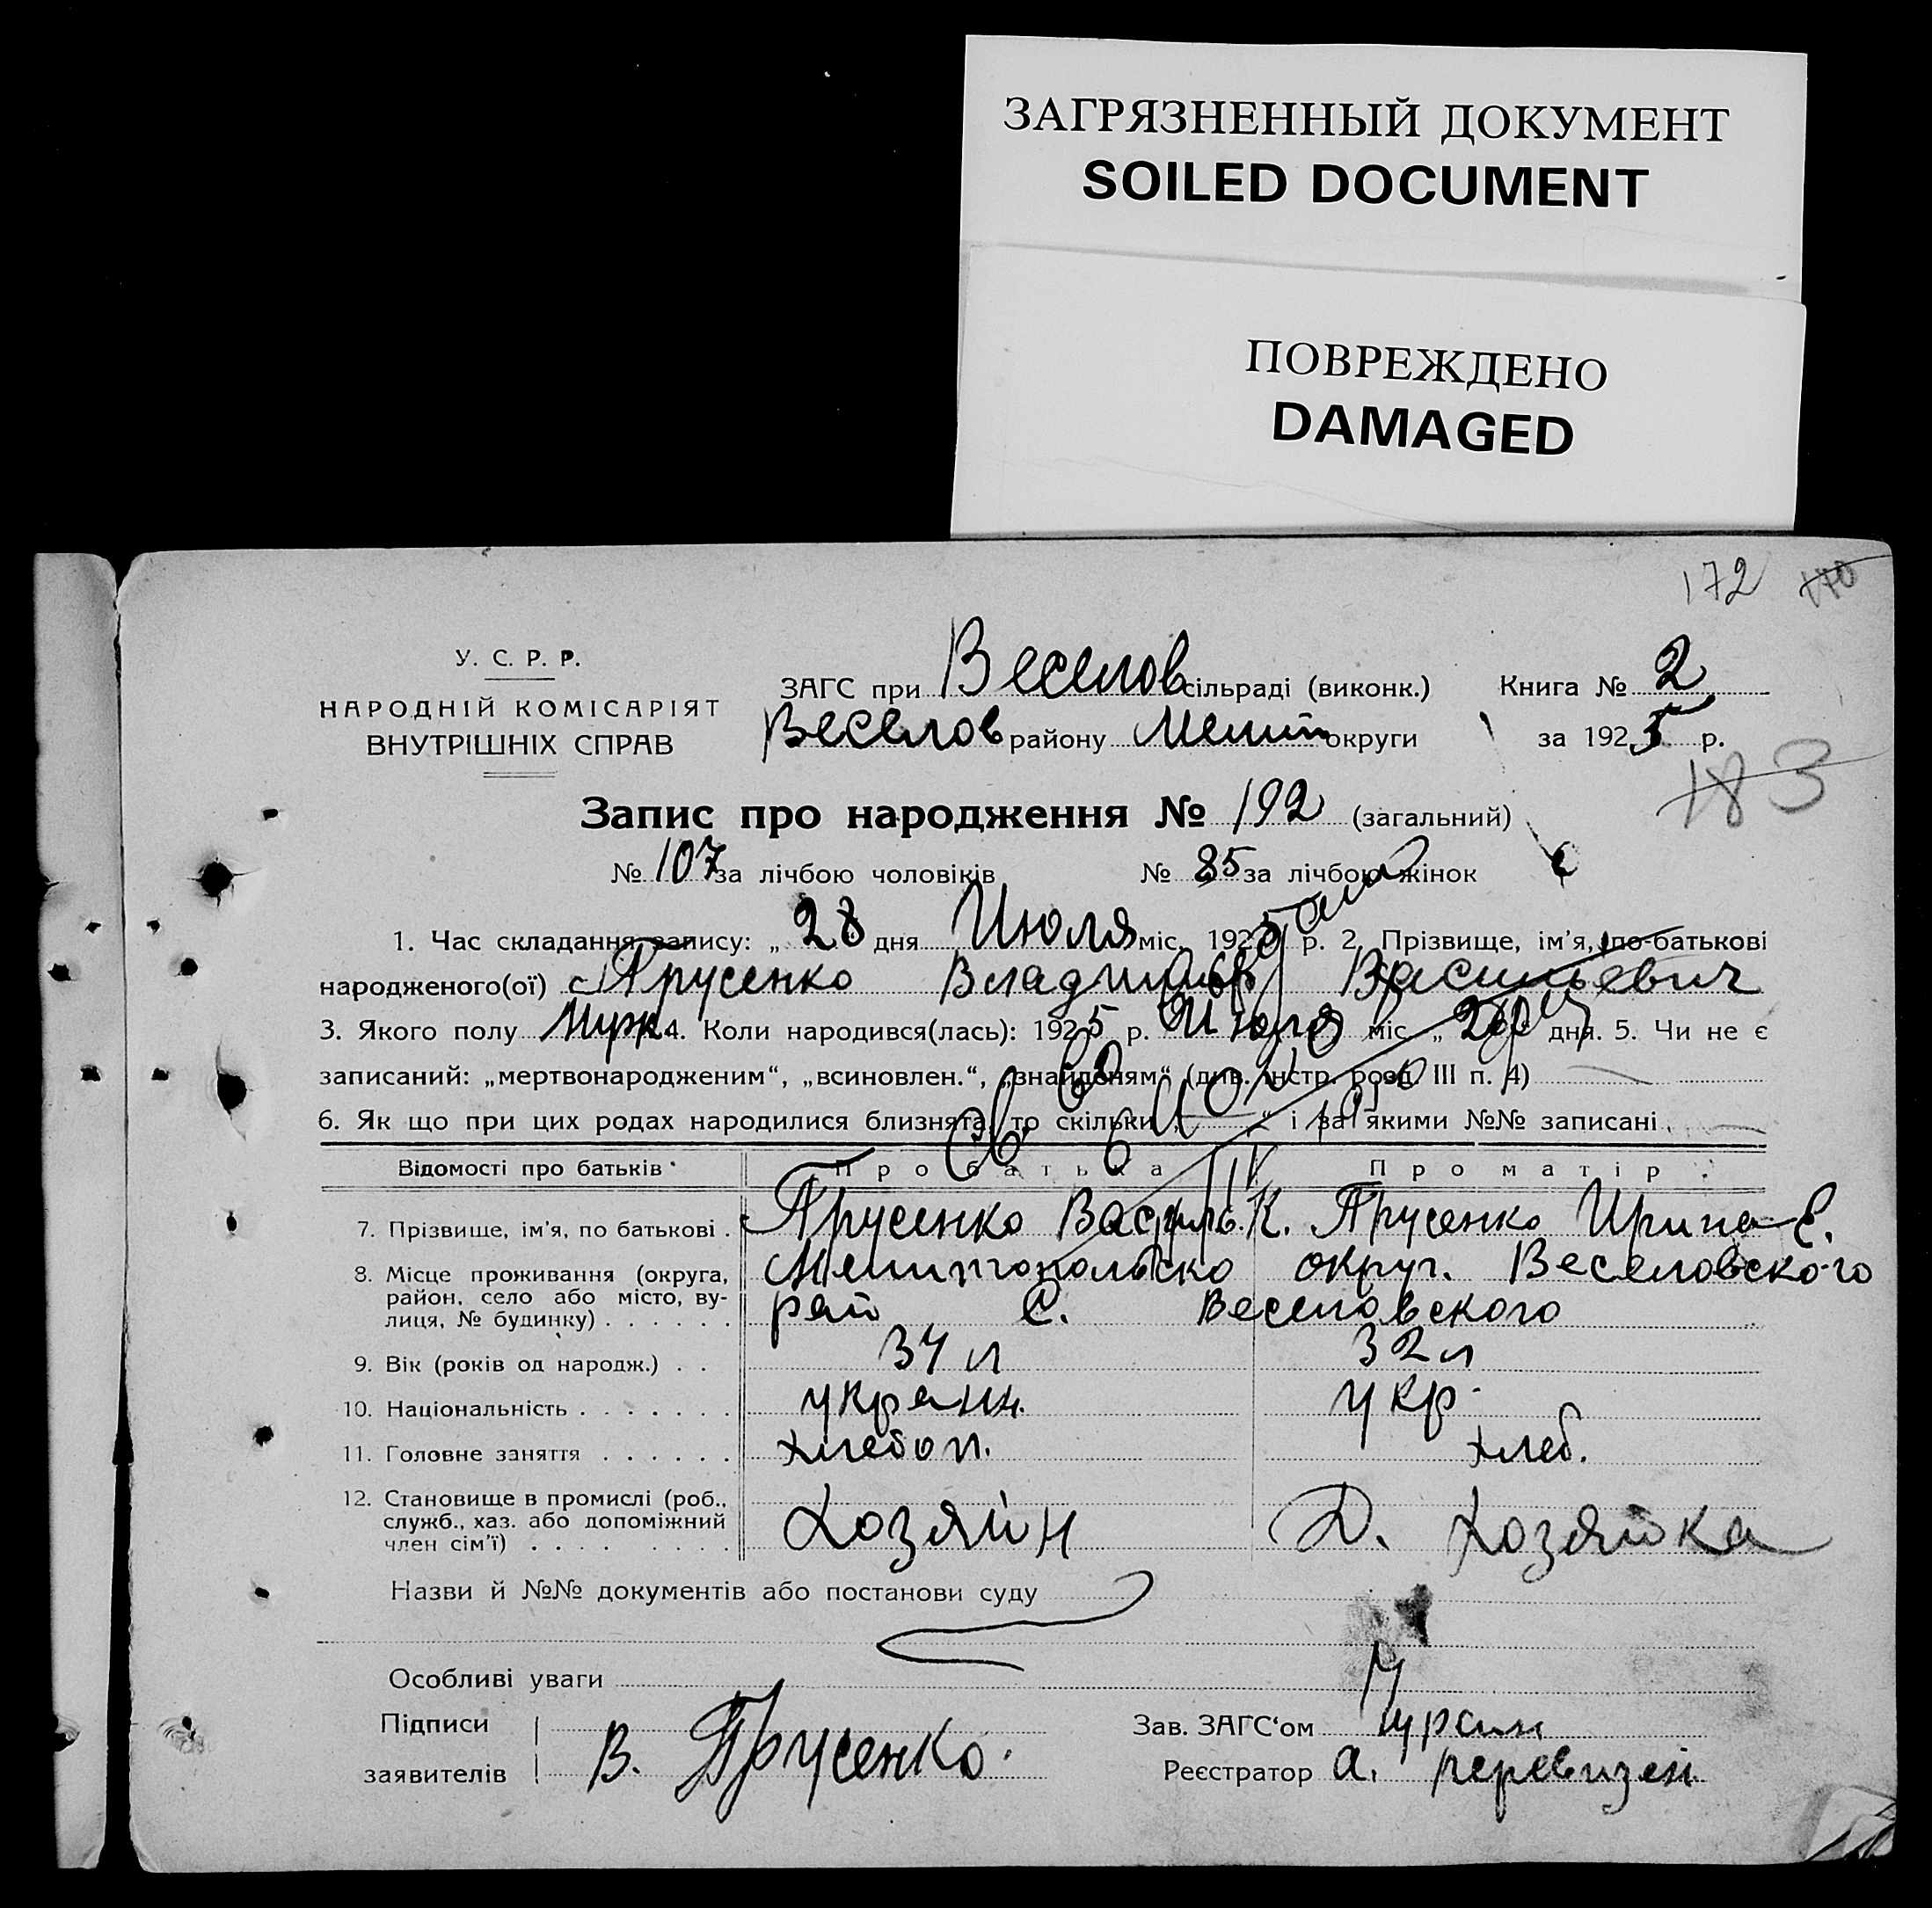 ЗАГРЯЗНЕННЫЙ ДОКУМЕНТ
SOILED DOCUMENT
ПОВРЕЖДЕНО
DAMAGED
172 170
У. С. Р. Р.
НАРОДНІЙ КОМІСАРІЯТ
ВНУТРІШНІХ СПРАВ
ЗАГС при Веселов сільраді (виконк.) Книга № 2
Веселов району Мелит округи за 1925 р.
183
Запис про народження № 192 (загальний)
№ 107 за лічбою чоловіків № 85 за лічбою жінок
1. Час складання запису: „ 28 дня Июля міс. 1925 р. 2. Прізвище, ім’я, по-батькові
народженого(ої) Трусенко Владимир Васильевич
3. Якого полу Муж. 4. Коли народився(лась): 1925 р. Июля міс. „ дня. 5. Чи не є
записаний: „мертвонародженим“, „всиновлен.“, „знайденям“ (див. інстр. розд. III п. 4)
6. Як що при цих родах народилися близнята, то скільки „ “ і за якими №№ записані
Відомості про батьків Про батька Про матір
7. Прізвище, ім’я, по батькові . Трусенко Василь. К. Трусенко Ирина Е.
8. Місце проживання (округа, Мелитопольско округ. Веселовского
район, село або місто, ву- рай С. Веселовского
лиця, № будинку) . . . . . .
9. Вік (років од народж.) . . 34 л 32 л
10. Національність . . . . . . . украин. укр.
11. Головне заняття . . . . . . хлебоп. хлеб.
12. Становище в промислі (роб.,
служб., хаз. або допоміжний Хозяин Д. Хозяйка
член сім’ї) . . . . . . . .
Назви й №№ документів або постанови суду
Особливі уваги
Підписи
заявителів В. Трусенко.
Зав. ЗАГС‘ом
Реєстратор А.